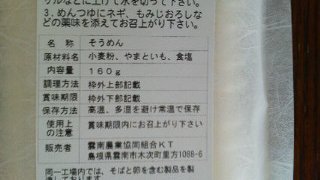 ザルなどに上げて水を切って下さい。
3. めんつゆにネギ、もみじおろしな
どの薬味を添えてお召上がり下さい。
名 称 そうめん
原材料名 小麦粉、やまといも、食塩
内容量 160g
調理方法 枠外上部記載
賞味期限 枠外下部記載
保存方法 高温、多湿を避け常温で保存
使用上の注意 賞味期限内にお召上がり下さい
販売者 雲南農業協同組合KT
島根県雲南市木次町里方1088-6
同一工場内では、そばと卵を含む製品を製